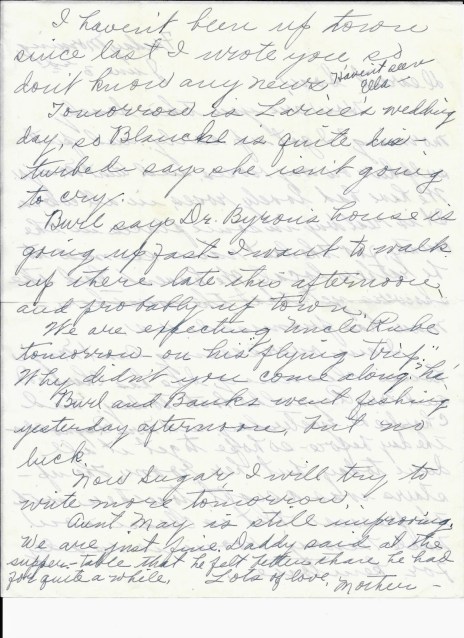 I haven't been up town
since last I wrote you, so
don't know any news. Haven't seen
Ella
Tomorrow is 's wedding
day, so Blanche is quite dis-
turbed. says she isn't going
to cry.
Burl says Dr. Byron's house is
going up fast. I want to walk
up there late this afternoon,
and probably up town.
We are expecting Uncle Rube
tomorrow - on his "flying trip."
Why didn't you come along? ha
Burl and Banks went fishing
yesterday afternoon, but no
luck.
Now Sugar, I will try to
write more tomorrow.
Aunt May is still improving.
We are just fine. Daddy said at the
supper-table that he felt better than he had
for quite a while. Lots of love, Mother -